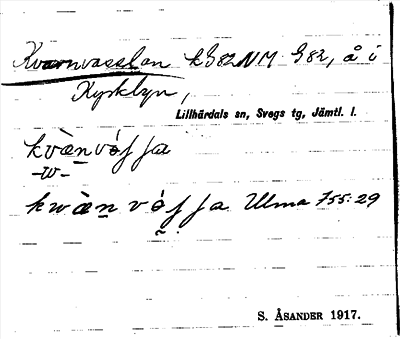 Kvarnvasslan k G82NM G82, å i
Kyrklyn,
Lillhärdals sn, Svegs tg, Jämtl. l.
kvæ̀n vóſſa
-w-
kwæ̀n vóſſa Ulma 755:29
S. ÅSANDER 1917.